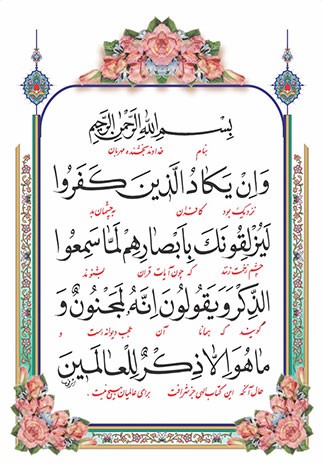 بِسْمِ اللهِ الرَّحْمٰنِ الرَّحِيمِ
بنام خداوند بخشنده مهربان
وَاِنْ يَكَادُ الَّذِينَ كَفَرُوا
نزدیک بود کافران به چشمان بد
لَيُزْلِقُونَكَ بِاَبْصَارِهِمْ لَمَّا سَمِعُوا
چشم زخمت زنند که چون آیات قرآن بشنوند
الذِّكْرَ وَيَقُولُونَ اِنَّهُ لَمَجْنُونٌ وَ
گویند که همانا آن عجب دیوانه است و
مَا هُوَ اِلَّا ذِكْرٌ لِلْعَالَمِينَ
حال آنکه این کتاب الهی جز شرافت برای عالمیان هیچ نیست.